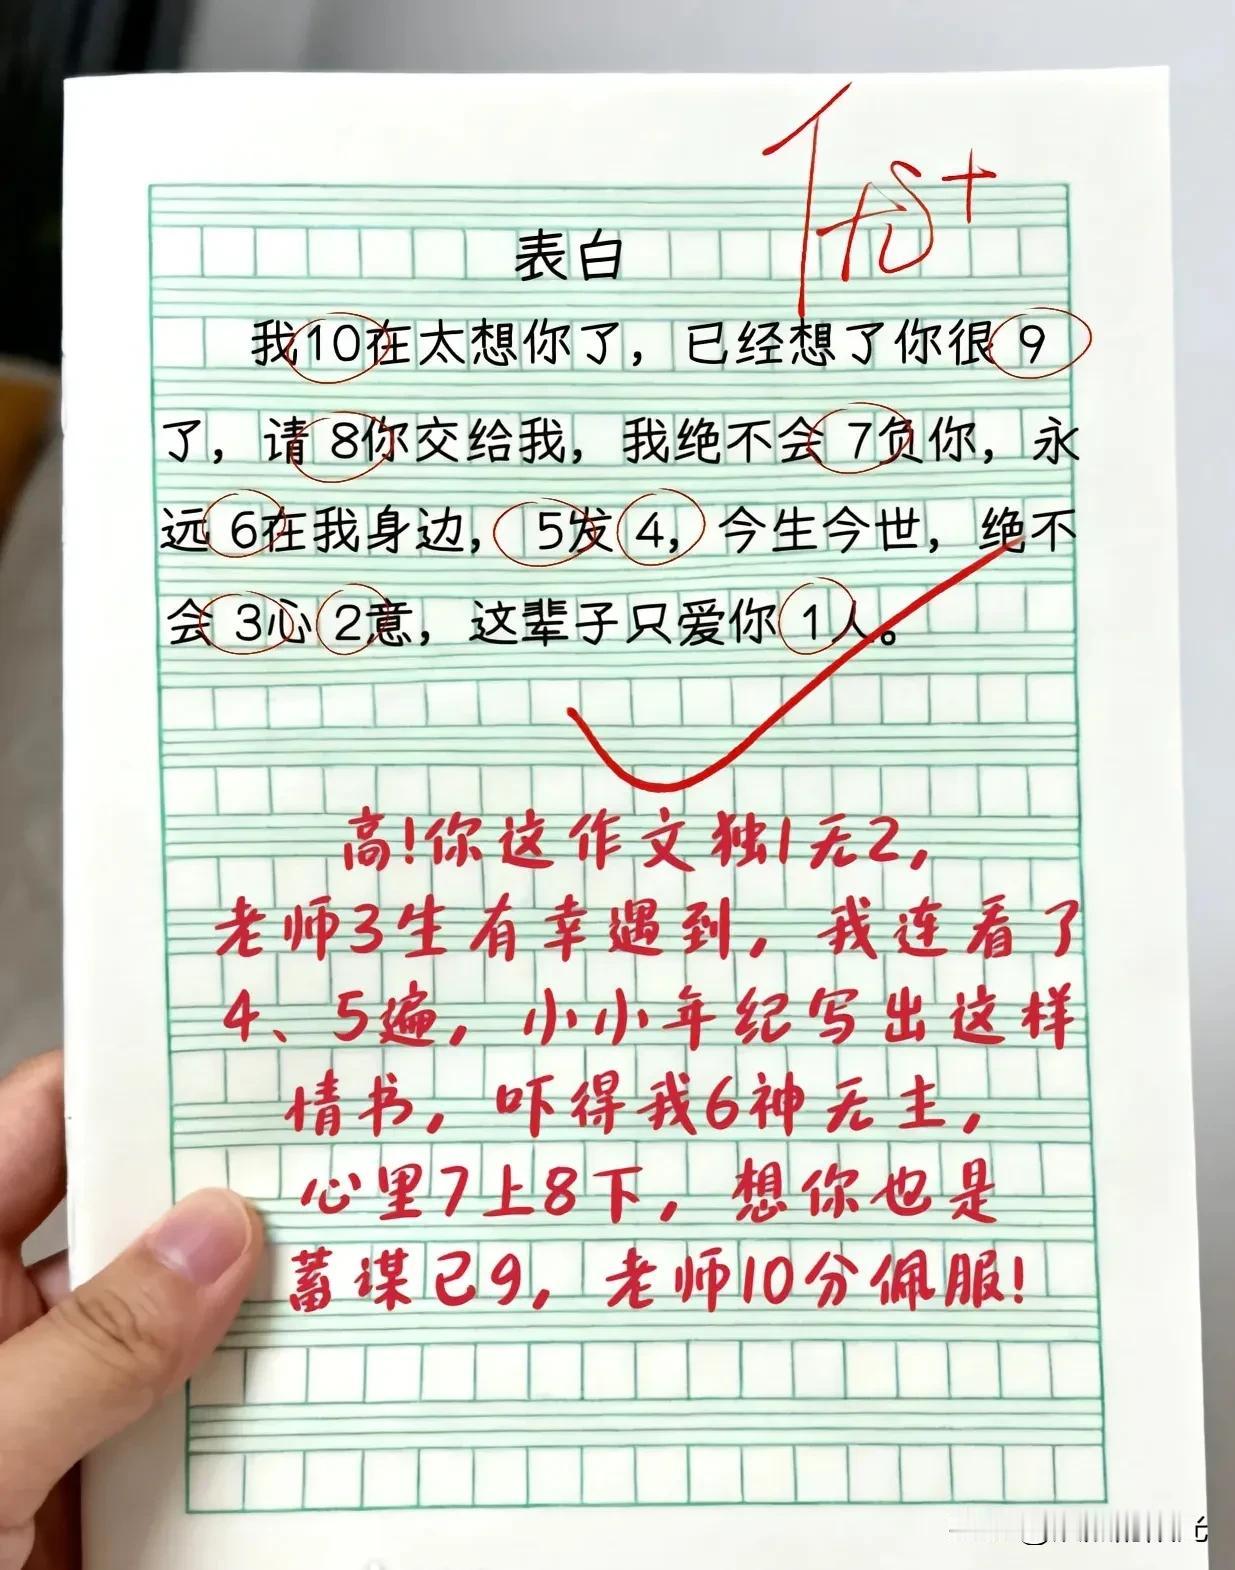 优+
表白
我10在太想你了，已经想了你很9
了，请8你交给我，我绝不会7负你，永
远6在我身边，5发4，今生今世，绝不
会3心2意，这辈子只爱你1人。
高!你这作文独1无2，
老师3生有幸遇到，我连看了
4、5遍，小小年纪写出这样
情书，吓得我6神无主，
心里7上8下，想你也是
蓄谋已9，老师10分佩服!